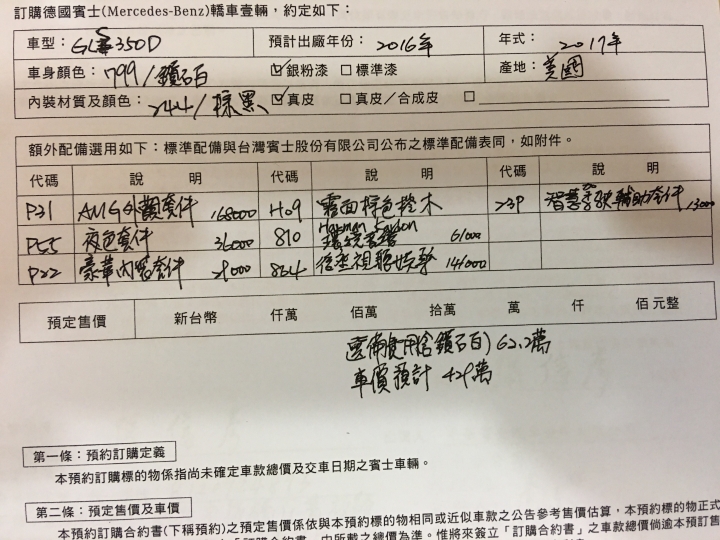 訂購德國賓士(Mercedes-Benz)轎車壹輛，約定如下：
車型：GLS350D 預計出廠年份：2016年 年式：2017年
車身顏色：799/鑽石白 ☑銀粉漆 □標準漆 產地：美國
內裝材質及顏色：244/棕黑 ☑真皮 □真皮／合成皮 □
額外配備選用如下：標準配備與台灣賓士股份有限公司公布之標準配備表同，如附件。
代碼 說 明 代碼 說 明 代碼 說 明
P31 AMG外觀套件 168000 H09 霧面棕色梣木 23P 智慧駕駛輔助套件
P55 夜色套件 36000 810 Harman Kardon 環繞音響 61000
P22 豪華內裝套件 864 後座視聽娛樂 141000
預定售價 新台幣 仟萬 佰萬 拾萬 萬 仟 佰元整
選佣費用(含鑽石白) 62.2萬
車價預計 429萬
第一條：預約訂購定義
本預約訂購標的物係指尚未確定車款總價及交車日期之賓士車輛。
第二條：預定售價及車價
本預約訂購合約書(下稱預約)之預定售價係依與本預約標的物相同或近似車款之公告參考售價估算，本預約標的物正式
「訂購合約書」中所載之總價為準。惟將來簽立「訂購合約書」之車款總價倘逾本預訂售